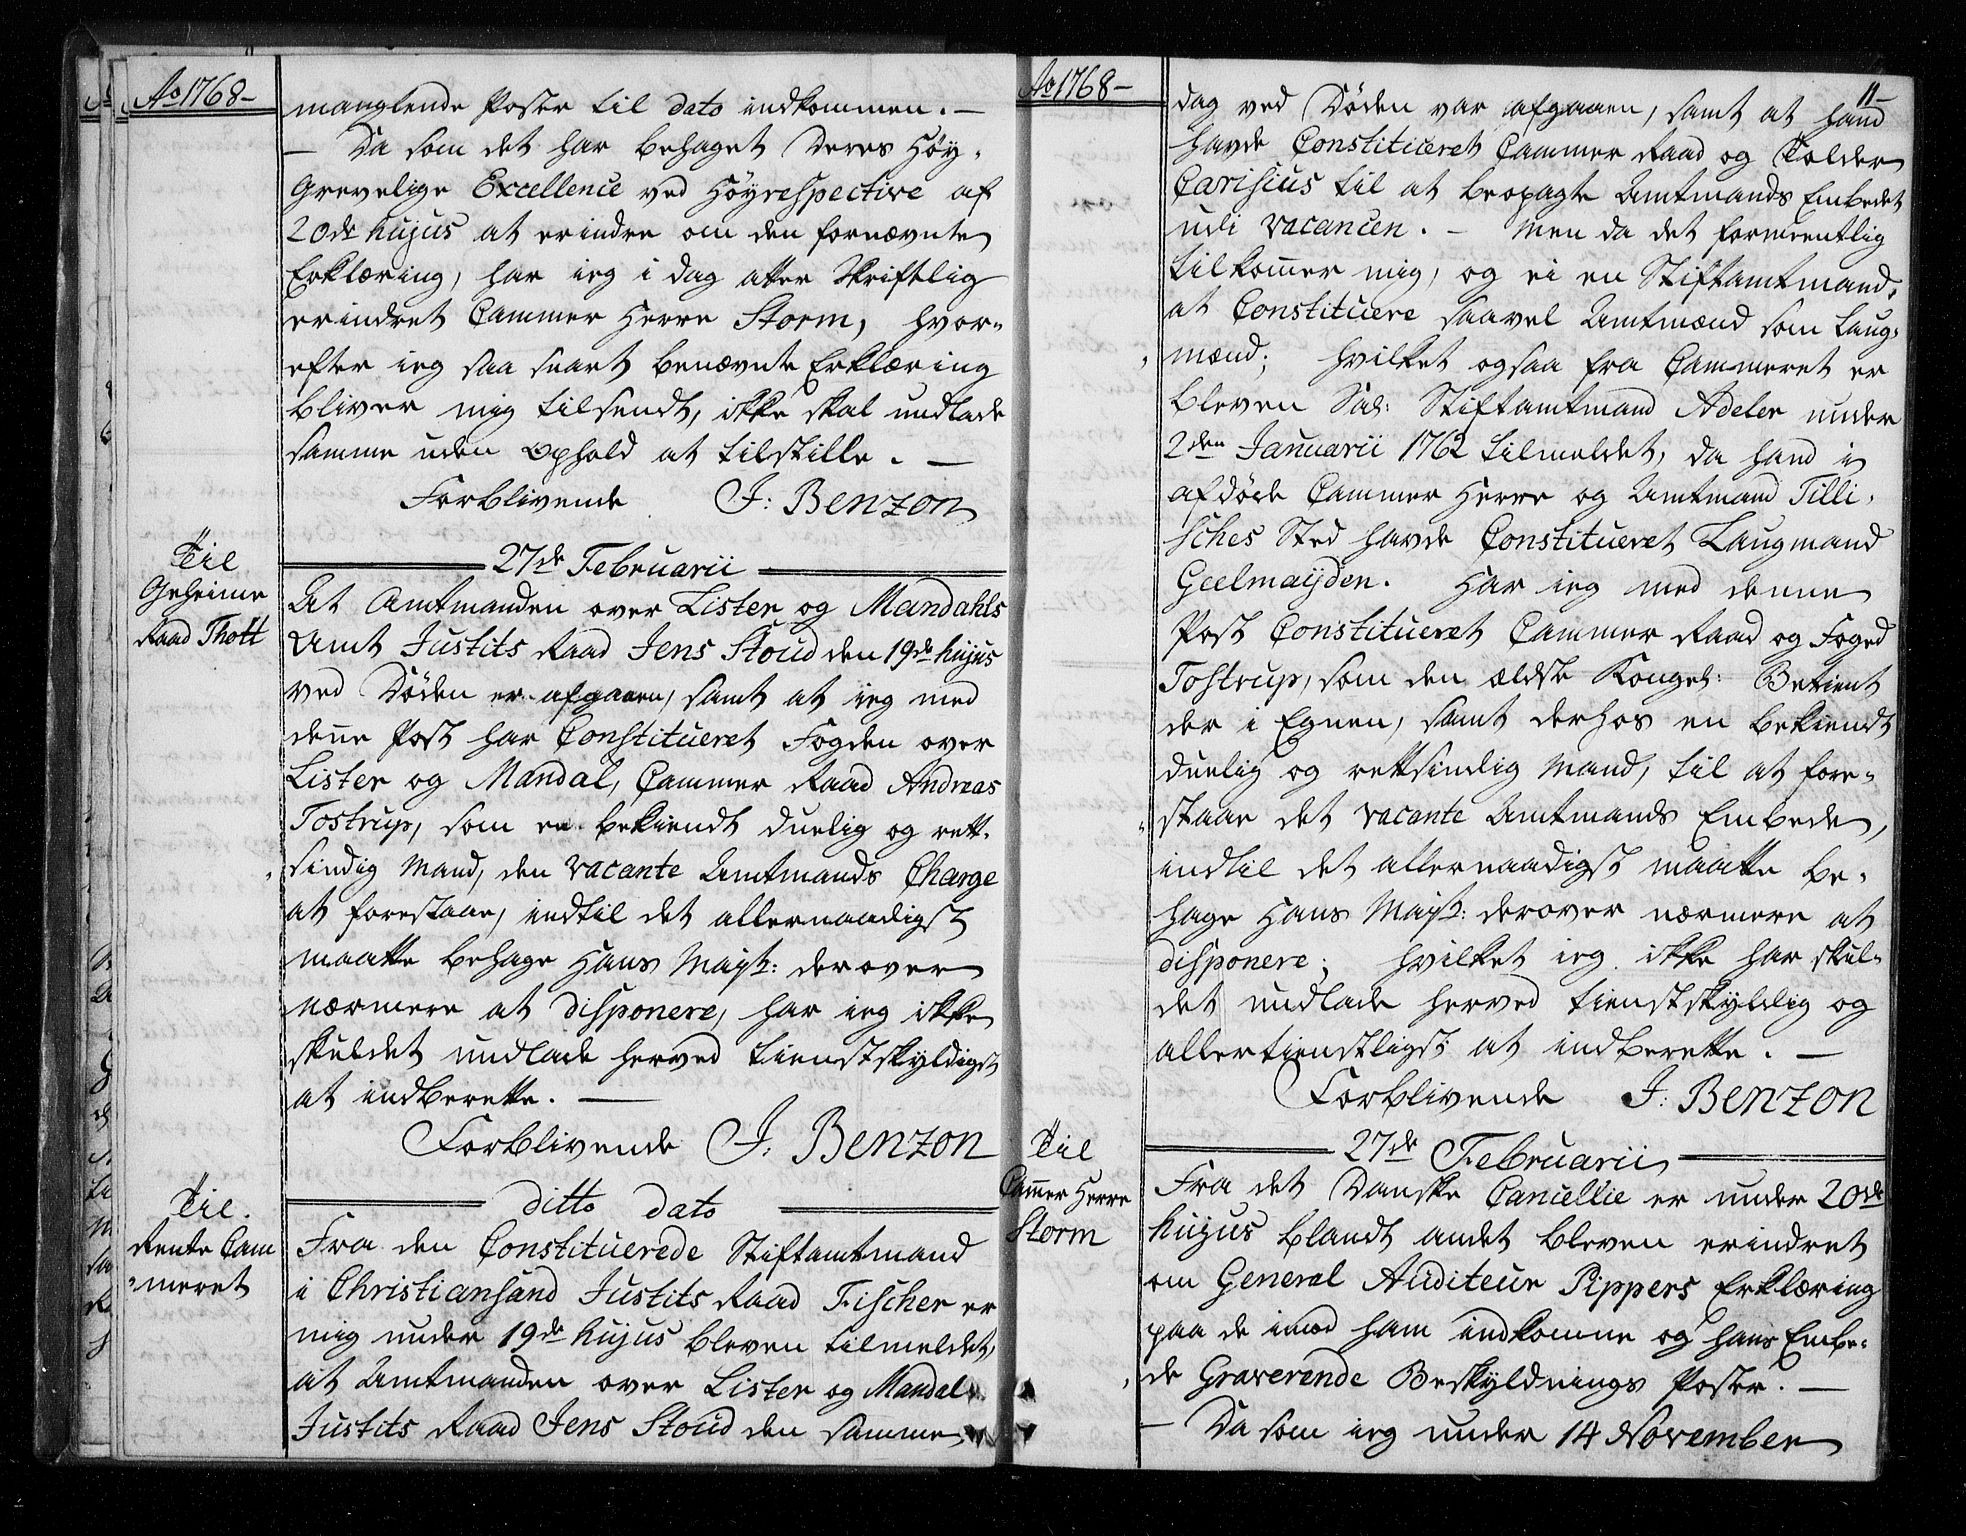 Ao 1768–
manglende Poster til dato indkommen. –
– Da som det har behaget Deres Høy-
Grevelige Excellence ved Høyrespective af
20de hujus at erindre om den fornævnte
Erklæring, har ieg i dag atter Skriftlig
erindret Cammer Herre Storm, hvor-
efter ieg saa snart benævnte Erklæring
bliver mig tilsendt, ikke skal undlade
samme uden Ophold at tilstille. –
Forblivende J: Benzon
27de Februarii
Til
Geheime
Raad Thott
At Amtmanden over Lister og Mandahls
Amt Justits Raad Jens Stoud den 19de hujus
ved Døden er afgaaen, samt at ieg med
denne Post har Constitueret Fogden over
Lister og Mandal, Cammer Raad Andreas
Tostrup, som en bekiendt duelig og rett-
sindig Mand, den vacante Amtmands Charge
at forestaae, indtil det allernaadigst
maatte behage Hans Mayst: derover
nærmere at disponere, har ieg ikke
skuldet undlade herved tienstskyldigst
at indberette. –
Forblivende J: Benzon
ditto dato
Til
Rente Cam
-meret
Fra den Constituerede Stiftamtmand
i Christiansand Justits Raad Fischer er
mig under 19de hujus bleven tilmeldet,
at Amtmanden over Lister og Mandal
Justits Raad Jens Stoud den samme
Ao 1768–
11–
dag ved Døden var afgaaen, samt at hand
havde Constitueret Cammer Raad og Tolder
Carisius til at beopagte Amtmands Embedet
udi vacancen. – Men da det formeentlig
tilkommer mig, og ei en Stiftamtmand,
at Constituere saavel Amtmænd som Laug-
mænd; hvilket ogsaa fra Cammeret er
bleven Sal: Stiftamtmand Adeler under
2den Januarii 1762 tilmeldet, da hand i
afdøde Cammer Herre og Amtmand Tilli-
sches Sted havde Constitueret Laugmand
Geelmuyden. Har ieg med denne
Post Constitueret Cammer Raad og Foged
Tostrup, som den ældste Kongel: Betient
der i Egnen, samt derhos en bekiendt
duelig og rettsindig Mand, til at fore-
staae det vacante Amtmands Embede,
indtil det allernaadigst maatte be-
hage Hans Mayst: derover nærmere at
disponere; hvilket ieg ikke har skul-
det undlade herved tienstskyldig og
allertienstligst at indberette. –
Forblivende J: Benzon
27de Februarii
Til
Cammer Herre
Storm
Fra det Danske Cancellie er under 20de
hujus blandt andet bleven erindret
om General Auditeur Pippers Erklæring
paa de imod ham indkomne og hans Embe-
de Graverende Beskyldnings Poster. –
– Da som ieg under 14 November